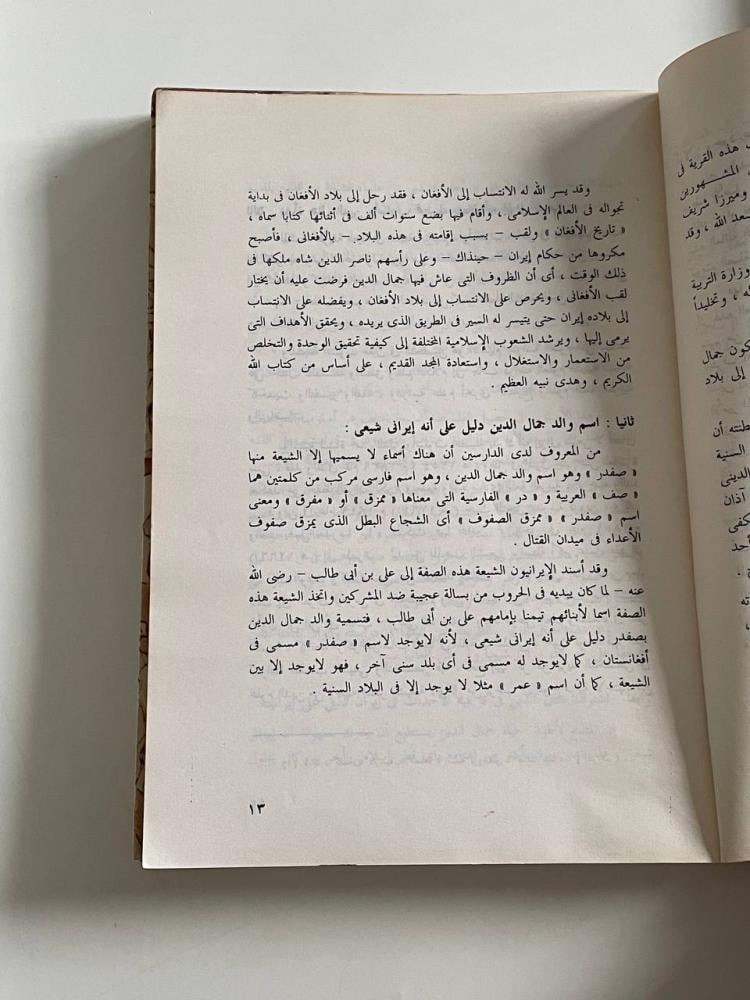 وقد يسر الله له الانتساب إلى الأفغان ، فقد رحل إلى بلاد الأفغان فى بداية
تجواله فى العالم الإسلامى ، وأقام فيها بضع سنوات ألف فى أثنائها كتابا سماه ،
« تاريخ الأفغان » ولقب – بسبب إقامته فى هذه البلاد – بالأفغانى ، فأصبح
مكروها من حكام إيران – حينذاك – وعلى رأسهم ناصر الدين شاه ملكها فى
ذلك الوقت ، أى أن الظروف التى عاش فيها جمال الدين فرضت عليه أن يختار
لقب الأفغانى ، ويحرص على الانتساب إلى بلاد الأفغان ، ويفضله على الانتساب
إلى بلاده إيران حتى يتيسر له السير فى الطريق الذى يريده ، ويحقق الأهداف التى
يرمى إليها ، ويرشد الشعوب الإسلامية المختلفة إلى كيفية تحقيق الوحدة والتخلص
من الاستعمار والاستغلال ، واستعادة المجد القديم ، على أساس من كتاب الله
الكريم ، وهدى نبيه العظيم .
ثانيا : اسم والد جمال الدين دليل على أنه إيرانى شيعى :
من المعروف لدى الدارسين أن هناك أسماء لا يسميها إلا الشيعة منها
« صفدر » وهو اسم والد جمال الدين ، وهو اسم فارسى مركب من كلمتين هما
« صف » العربية و « در » الفارسية التى معناها « ممزق » أو « مفرق » ومعنى
اسم « صفدر » « ممزق الصفوف » أى الشجاع البطل الذى يمزق صفوف
الأعداء فى ميدان القتال .
وقد أسند الإيرانيون الشيعة هذه الصفة إلى على بن أبى طالب – رضى الله
عنه – لما كان يبديه فى الحروب من بسالة عجيبة ضد المشركين واتخذ الشيعة هذه
الصفة اسما لأبنائهم تيمنا بإمامهم على بن أبى طالب ، فتسمية والد جمال الدين
بصفدر دليل على أنه إيرانى شيعى ، لأنه لايوجد لاسم « صفدر » مسمى فى
أفغانستان ، كما لايوجد له مسمى فى أى بلد سنى آخر ، فهو لايوجد إلا بين
الشيعة ، كما أن اسم « عمر » مثلا لا يوجد إلا فى البلاد السنية .
١٣
هذه القرية فى
المشهورين
وميرزا شريف
سعد الله ، وقد
وزارة التربية
، وتخليداً
كون جمال
إلى بلاد
أن
السنية
الدينى
آذان